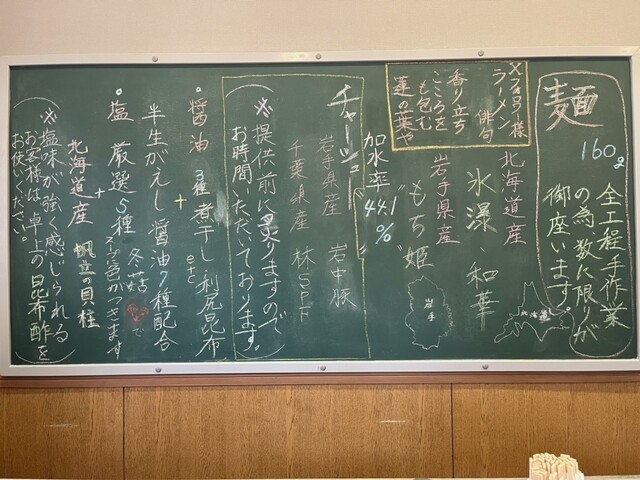 麺 160g
全工程手作業
の為数に限りが
御座います。
Xフォロワー様
ラーメン 俳句
香り立ち
こころを
も包む
蓮の葉や
北海道産
氷瀑、和華
北海道
岩手県産
"もち姫"
岩手
加水率
44.1%
チャーシュー
岩手県産 岩中豚
千葉県産 林SPF
(※提供前に炙りますので
お時間いただいております。)
。醤油 3種煮干し 利尻昆布
etc
+
半生がえし 醤油7種配合
。塩 厳選5種 冬菇で
色がつきます
+
北海道産 帆立の貝柱
(※塩味が強く感じられる
お客様は、卓上の昆布酢を
お使いください。)